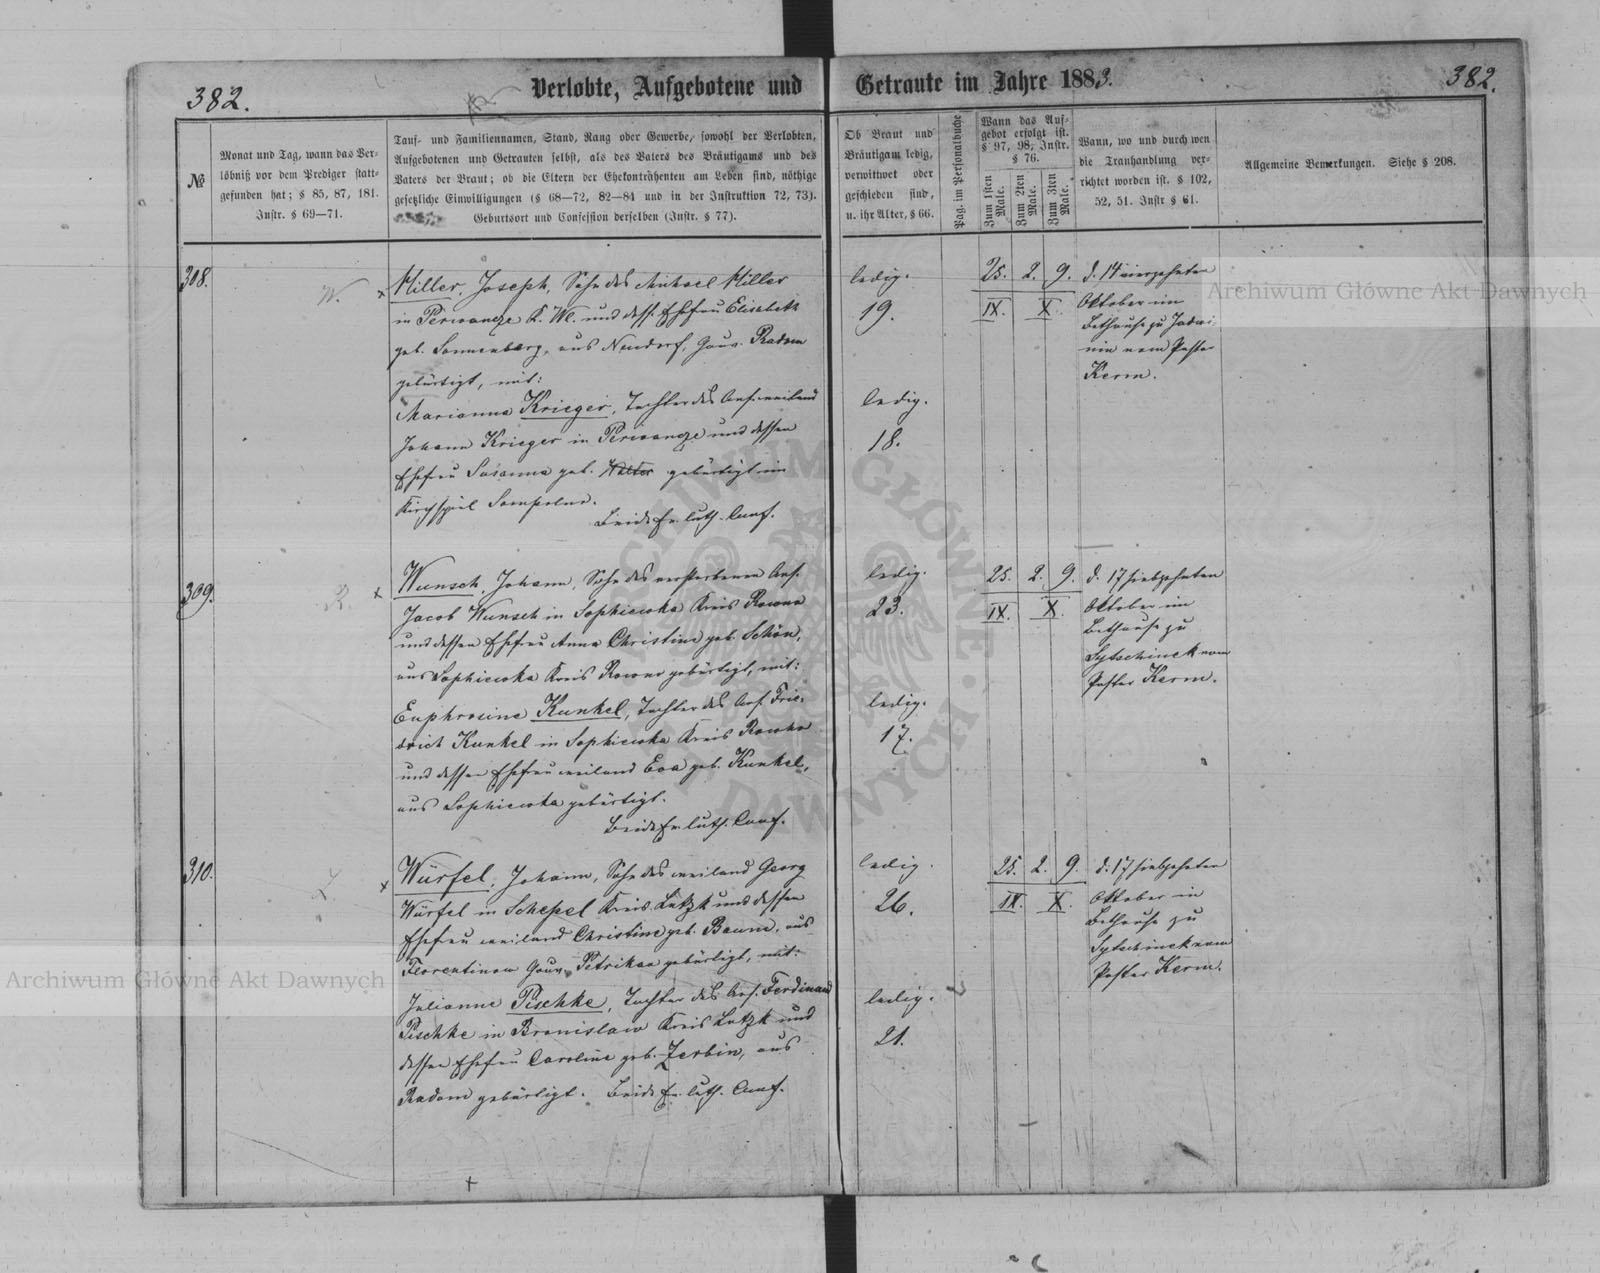 382.
Verlobte, Aufgebotene und Getraute im Jahre 1883.
382.
№
Monat und Tag, wann das Ver-
löbniß vor dem Prediger statt-
gefunden hat; § 85, 87, 181.
Instr. § 69—71.
Tauf- und Familiennamen, Stand, Rang oder Gewerbe, sowohl der Verlobten,
Aufgebotenen und Getrauten selbst, als des Vaters des Bräutigams und des
Vaters der Braut; ob die Eltern der Ehekontrahenten am Leben sind, nöthige
gesetzliche Einwilligungen (§ 68—72, 82—84 und in der Instruktion 72, 73).
Geburtsort und Confession derselben (Instr. § 77).
Ob Braut und
Bräutigam ledig,
verwittwet oder
geschieden sind,
u. ihr Alter, § 66.
Pag. im Personalbuche
Wann das Auf-
gebot erfolgt ist.
§ 97, 98, Instr.
§ 76.
Zum 1sten
Male.
Zum 2ten
Male.
Zum 3ten
Male.
Wann, wo und durch wen
die Trauhandlung ver-
richtet worden ist. § 102,
52, 51. Instr § 61.
Allgemeine Bemerkungen. Siehe § 208.
308.
W.
Miller, Joseph, Sohn des Michael Miller
in Perwancze K. Wl. und dess. Ehefrau Elisabeth
geb. Sonnenberg, aus Neudorf, Gouv. Radom
gebürtigt, mit:
Marianna Krieger, Tochter des Ans. weiland
Johann Krieger in Perwancze und dessen
Ehefrau Susanna geb. Walter gebürtigt im
Kirchspiel Sompolno.
Beide Ev. luth. Conf.
ledig.
19.
ledig.
18.
25. 2. 9.
IX. X.
d. 14 vierzehnten
Oktober im
Bethause zu Jadwi-
nin vom Pastor
Kerm.
309.
R.
Wunsch, Johann, Sohn des verstorbenen Ans.
Jacob Wunsch in Sophiewka Kreis Rowno
und dessen Ehefrau Anna Christine geb. Schön,
aus Sophiewka Kreis Rowno gebürtigt, mit:
Euphrosine Kunkel, Tochter des Ans. Frie-
drich Kunkel in Sophiewka Kreis Rowno
und dessen Ehefrau weiland Eva geb. Kunkel,
aus Sophiewka gebürtigt.
Beide Ev. luth. Conf.
ledig.
23.
ledig.
17.
25. 2. 9.
IX. X.
d. 17 siebzehnten
Oktober im
Bethause zu
Sytschinek vom
Pastor Kerm.
310.
L
Würfel, Johann, Sohn des weiland Georg
Würfel in Schepel Kreis Lutzk und dessen
Ehefrau weiland Christine geb. Baum, aus
Florentinow Gouv. Petrikau gebürtigt, mit:
Julianne Pischke, Tochter des Ans. Ferdinand
Pischke in Bronislaw Kreis Lutzk und
dessen Ehefrau Caroline geb. Zerbin, aus
Radom gebürtigt. Beide Ev. luth. Conf.
ledig.
26.
ledig.
21.
25. 2. 9.
IX. X.
d. 17 siebzehnten
Oktober im
Bethause zu
Sytschinek vom
Pastor Kerm.
Archiwum Główne Akt Dawnych
Archiwum Główne Akt Dawnych
ARCHIWUM GŁÓWNE AKT DAWNYCH